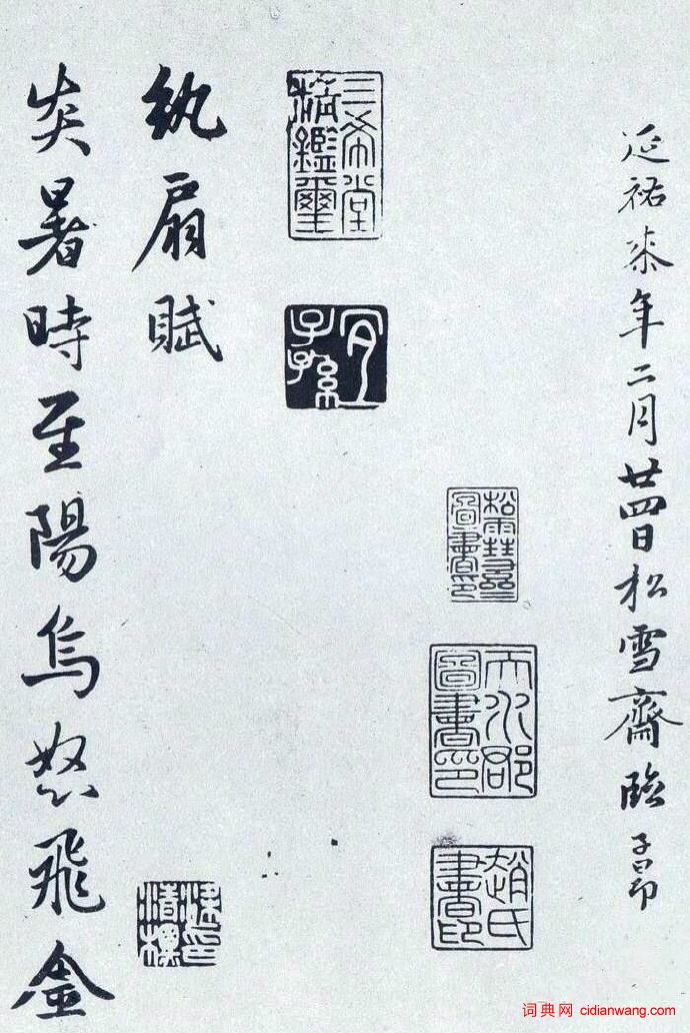 延祐柒年二月廿四日松雪齋臨子昂
松雪齋圖書印
天水郡圖書印
趙氏書印
三希堂精鑑璽
宜子孫
紈扇賦
梁印清標
炎暑時至陽烏怒飛金
词典网 cidianwang.com